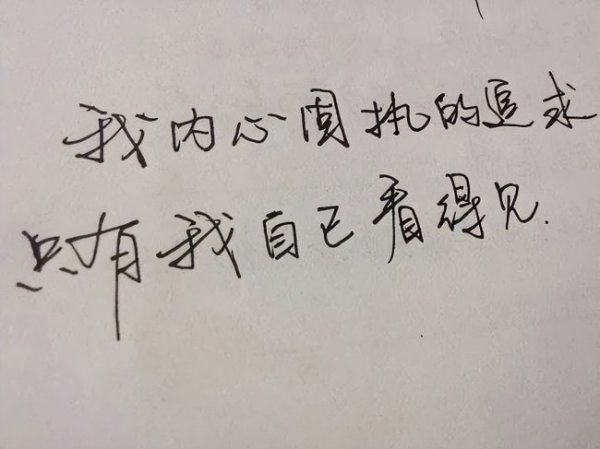 我内心固执的追求
只有我自己看得见.